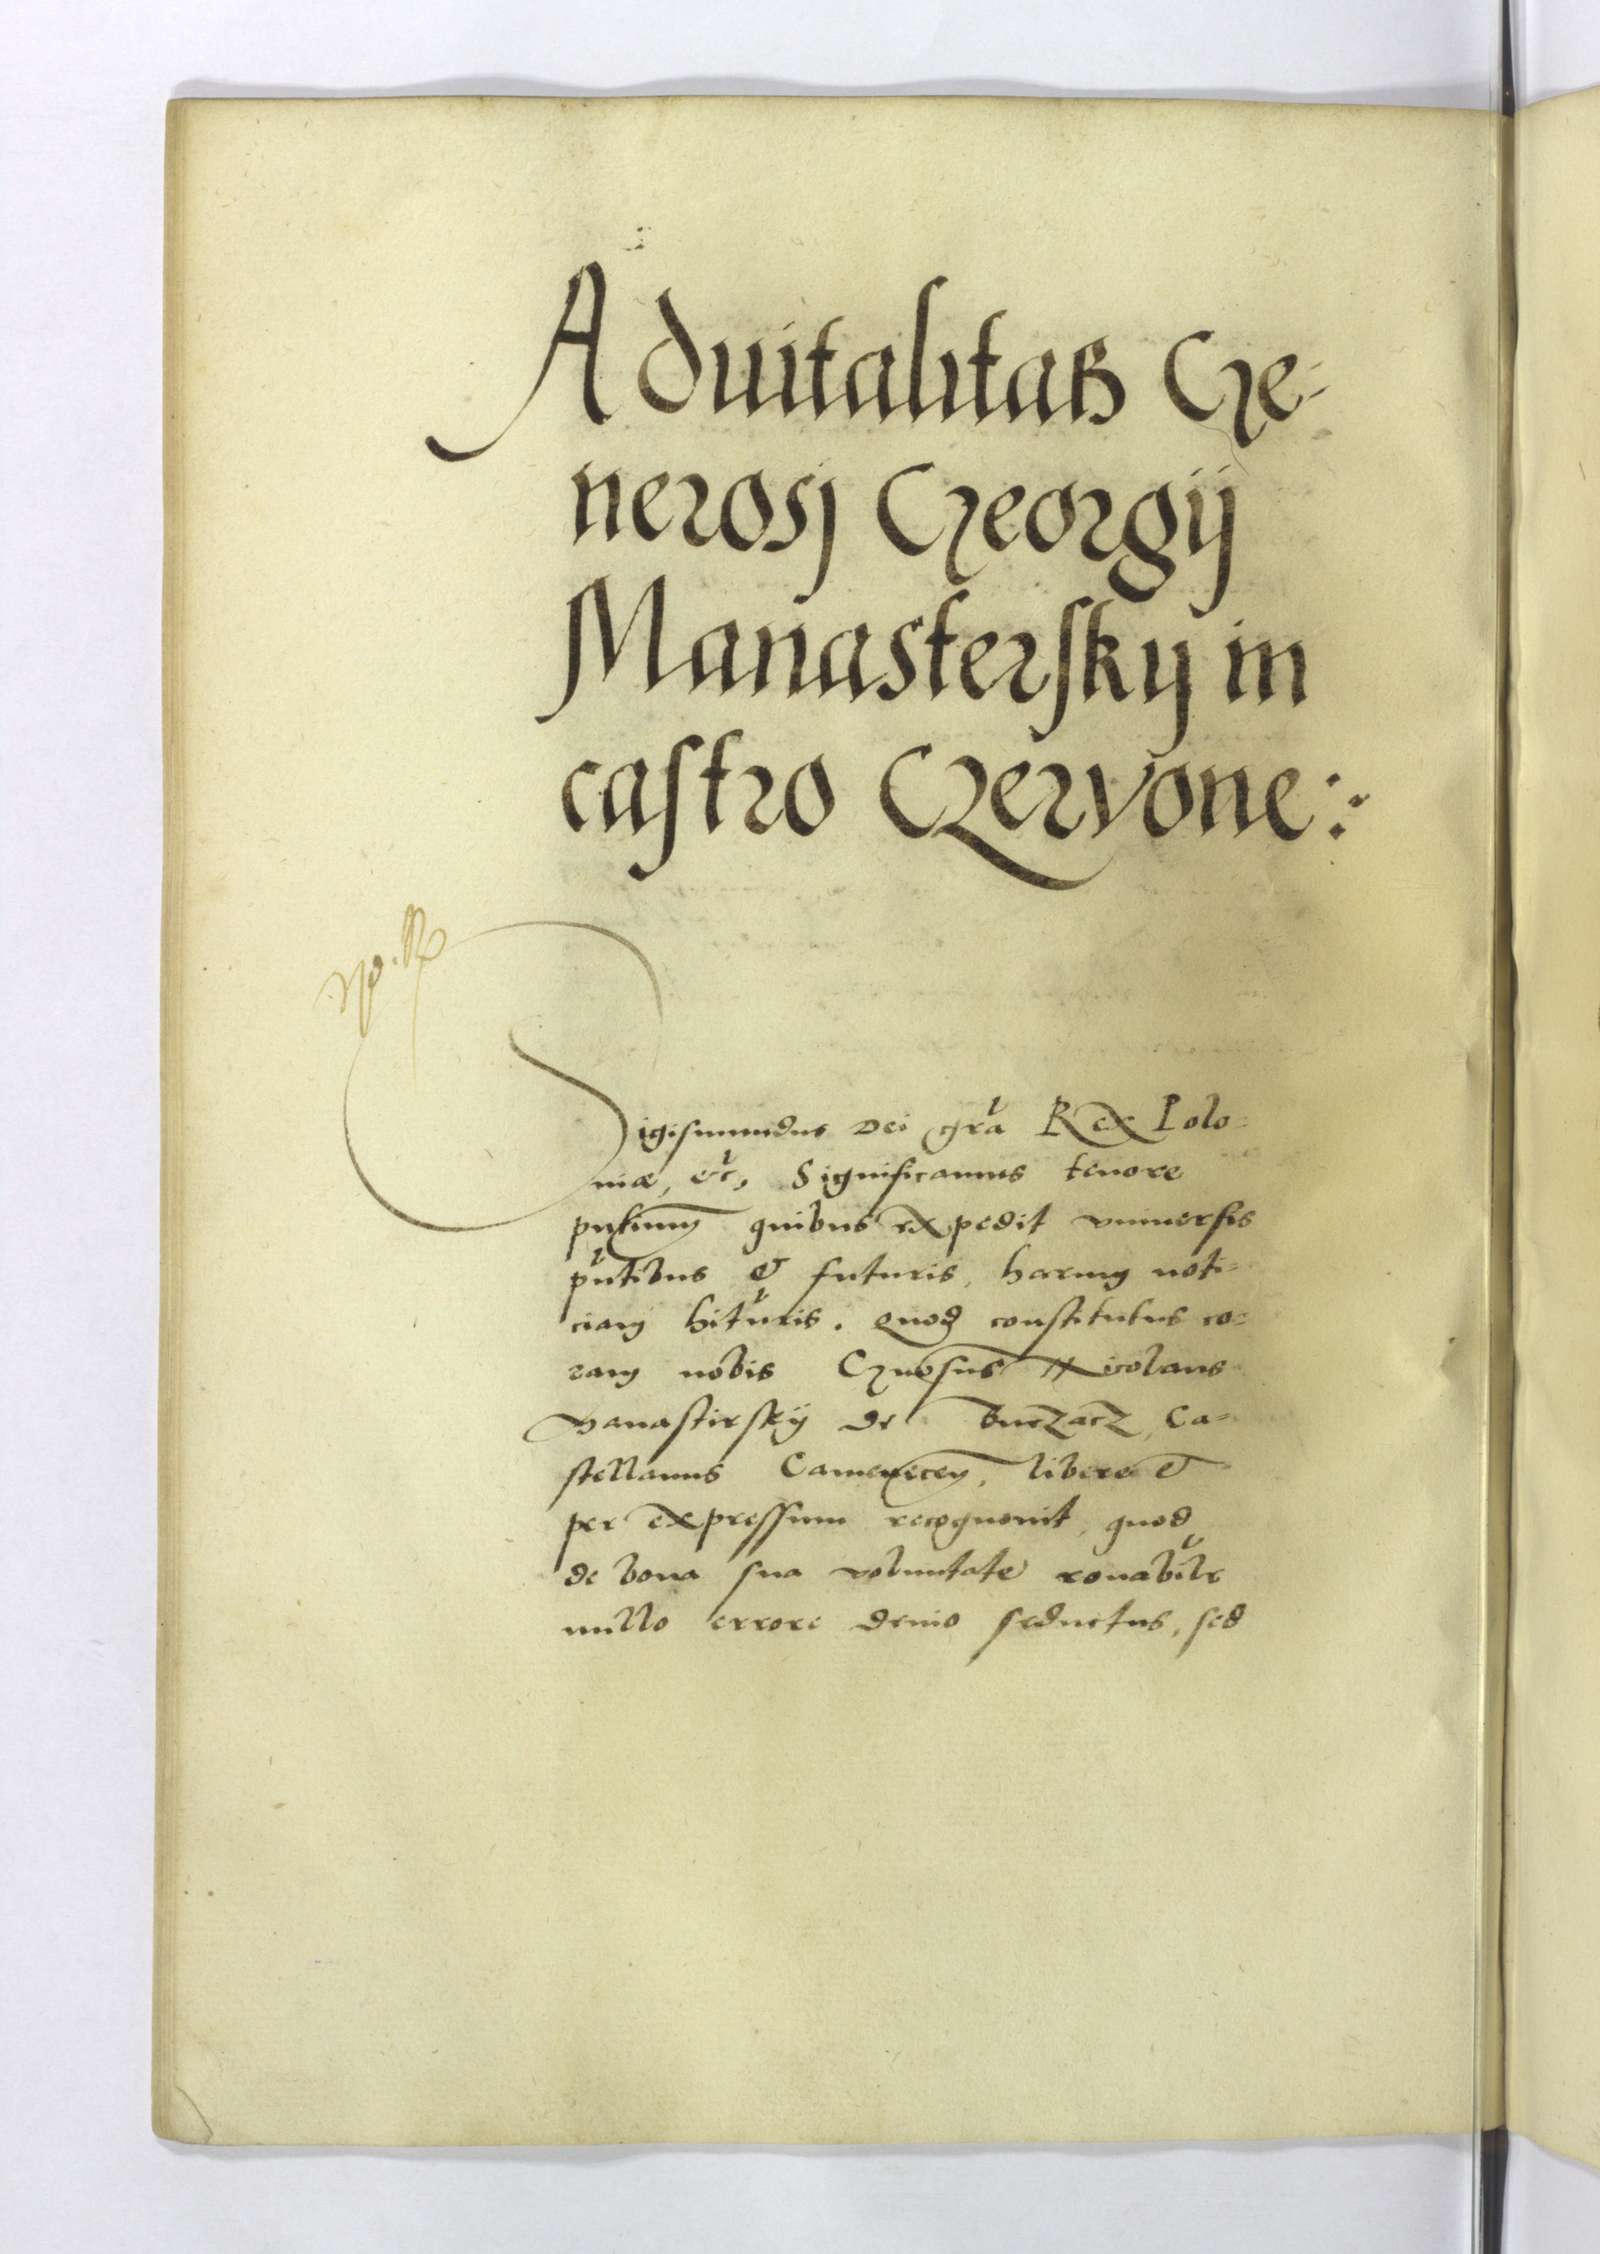 Aduitalitas Ge-
nerosj Georgij
Manastersky in
castro Czervone:
Sigismundus Dei gra Rex Polo-
niæ, etc, Significamus tenore
pntium quibus expedit vniuersis
pntibus & futuris, harum noti-
ciam hituris. Quod constitutus co-
ram nobis Gnosus Nicolaus
Manastirskij de Buczacz, Ca-
stellanus Camenecen, libere &
per expressum recognouit, quod
de bona sua voluntate ronabile
nullo errore deuio seductus, sed